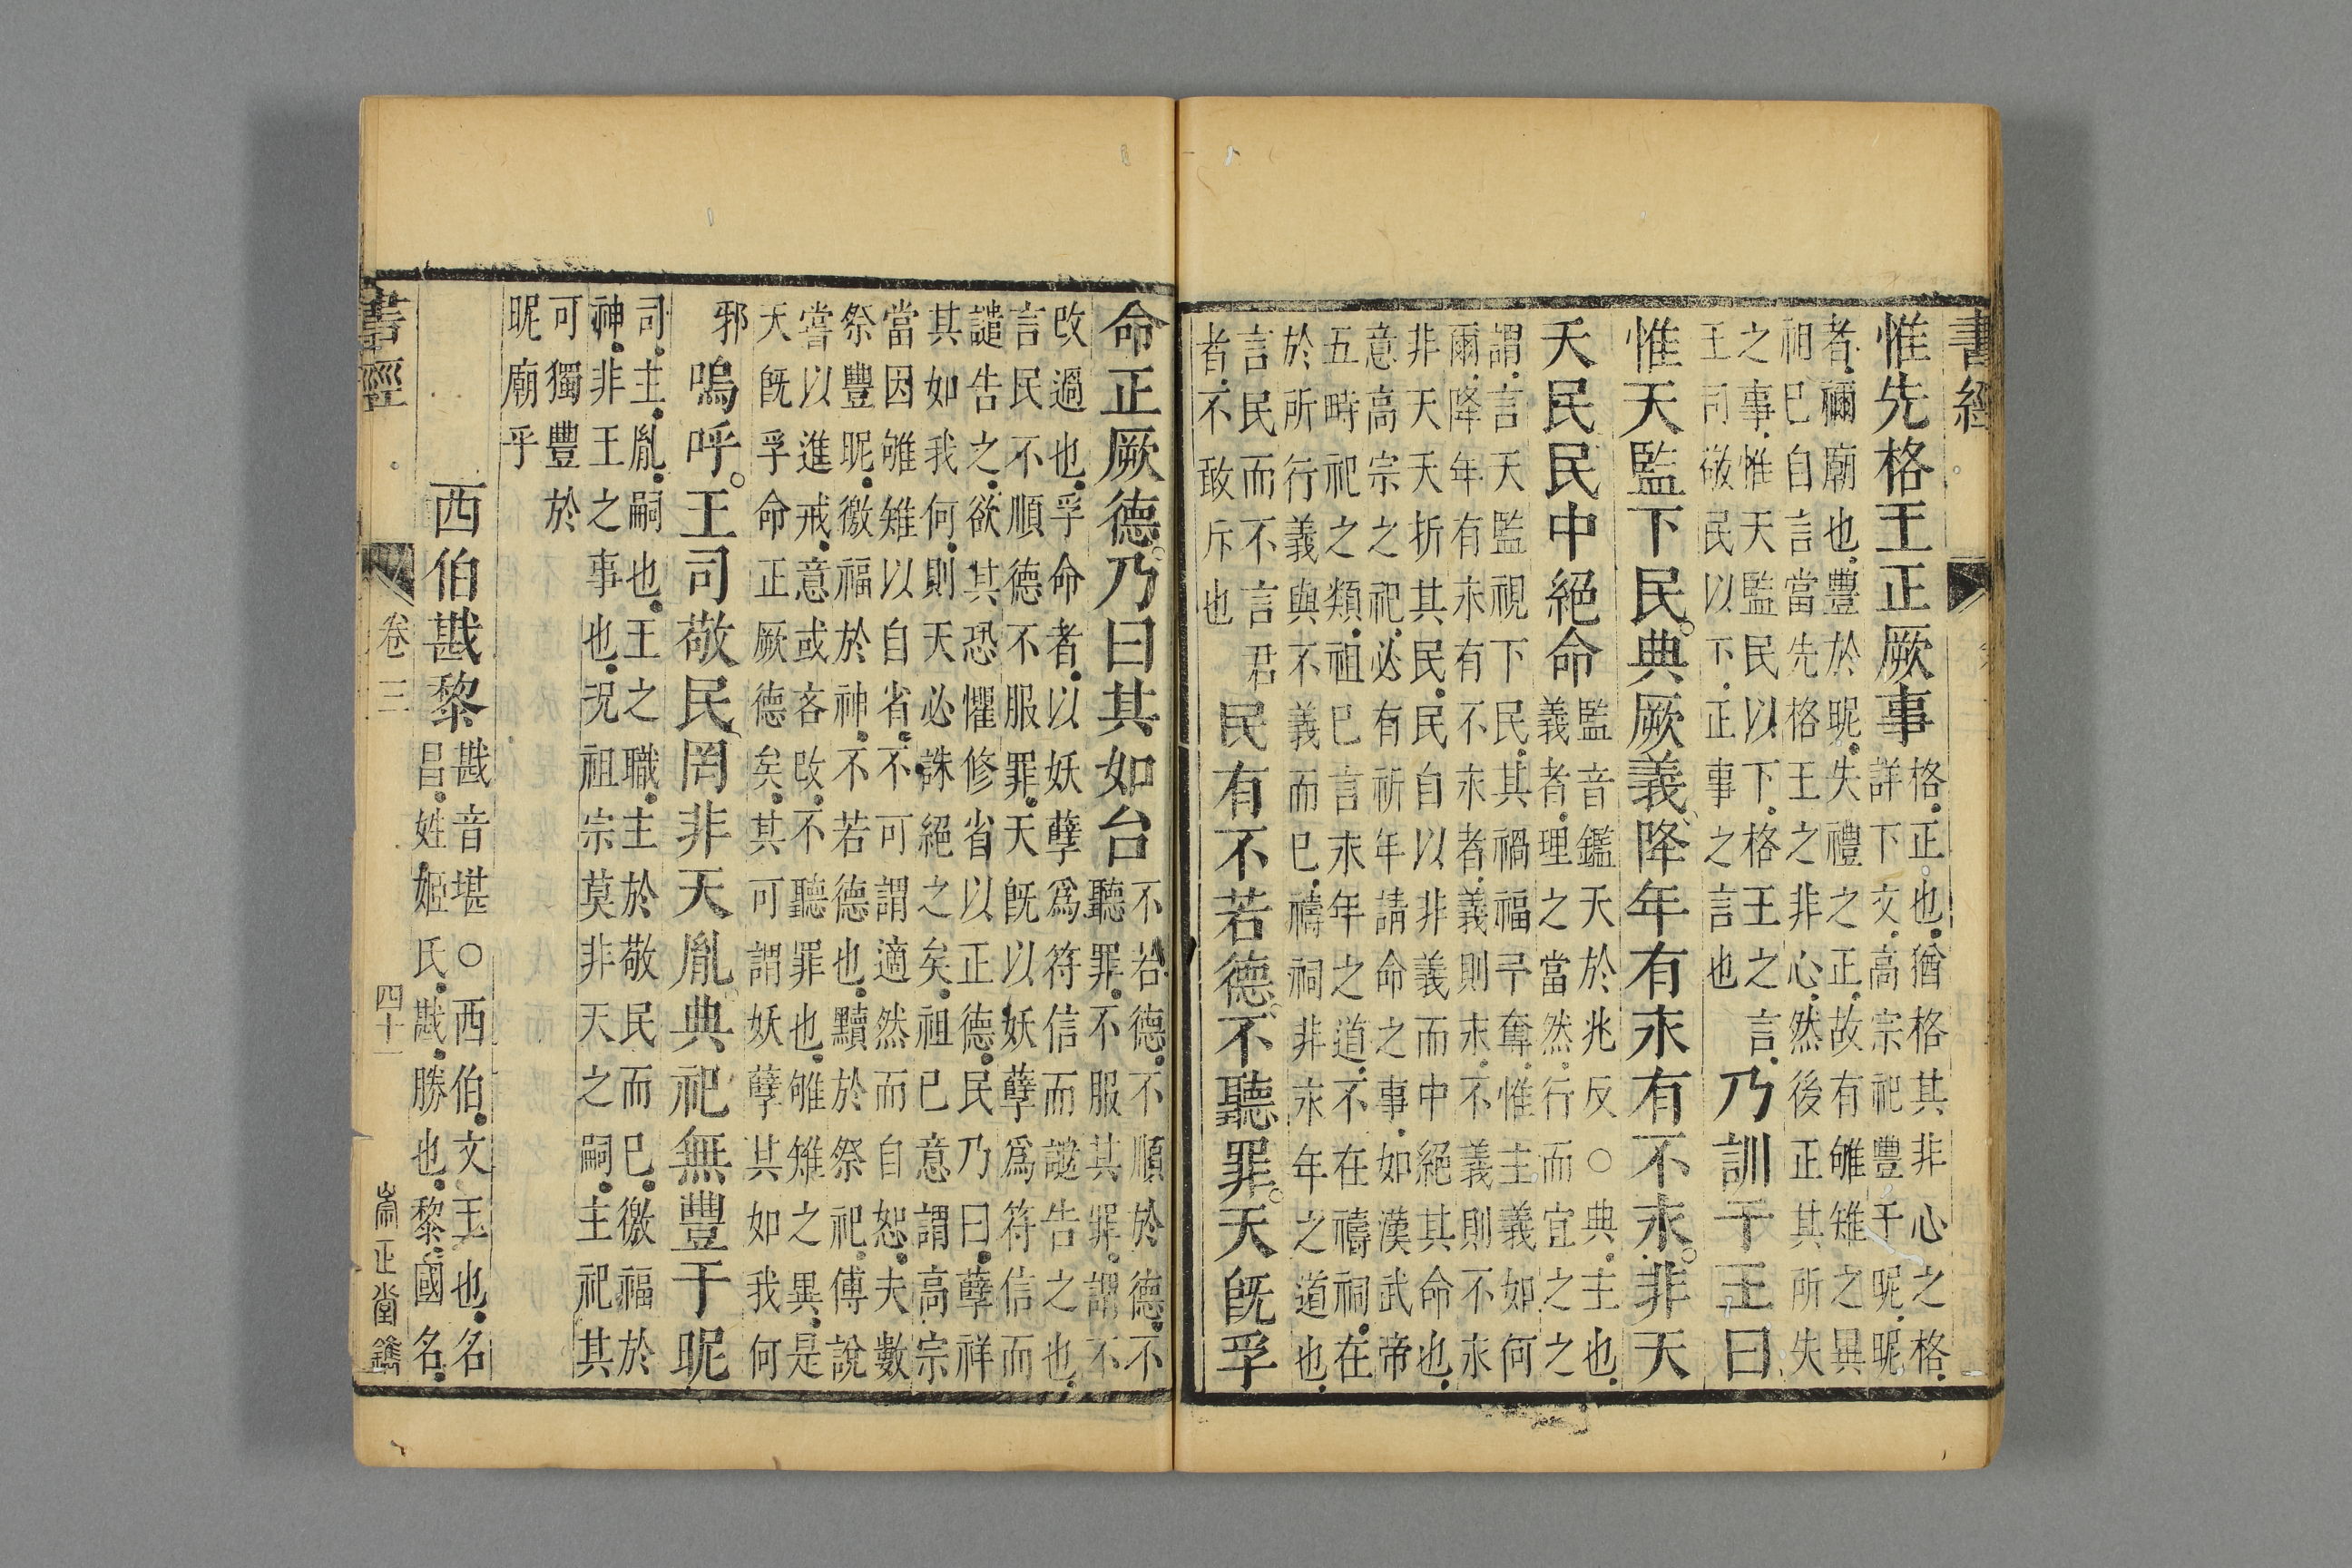 書經
惟先格王正厥事
格正也猶格其非心之格
詳下文高宗祀豐于昵昵
者禰廟也豐於昵失禮之正故有雊雉之異
祖已自言當先格王之非心然後正其所失
之事惟天監民以下格王之言
王司敬民以下正事之言也
乃訓于王曰
惟天監下民典厥義降年有永有不永非天
夭民民中絕命
監音鑑夭於兆反○典主也
義者理之當然行而宜之之
謂言天監視下民其禍福予奪惟主義如何
爾降年有永有不永者義則永不義則不永
非天夭折其民民自以非義而中絕其命也
意高宗之祀必有祈年請命之事如漢武帝
五畤祀之類祖已言永年之道不在禱祠在
於所行義與不義而已禱祠非永年之道也
言民而不言君
者不敢斥也
民有不若德不聽罪天旣孚
命正厥德乃曰其如台
不若德不順於德不
聽罪不服其罪謂不
改過也孚命者以妖孽爲符信而譴告之也
言民不順德不服罪天旣以妖孽爲符信而
譴告之欲其恐懼修省以正德民乃曰孽祥
其如我何則天必誅絕之矣祖已意謂高宗
當因雊雉以自省不可謂適然而自恕夫數
祭豐昵徼福於神不若德也黷於祭祀傅說
嘗以進戒意或吝改不聽罪也雊雉之異是
天旣孚命正厥德矣其可謂妖孽其如我何
邪
嗚呼王司敬民罔非天胤典祀無豐于昵
司主胤嗣也王之職主於敬民而已徼福於
神非王之事也況祖宗莫非天之嗣主祀其
可獨豐於
昵廟乎
西伯戡黎
戡音堪○西伯文王也名
昌姓姬氏戡勝也黎國名
書經 卷三 四十一 崇正堂鐫